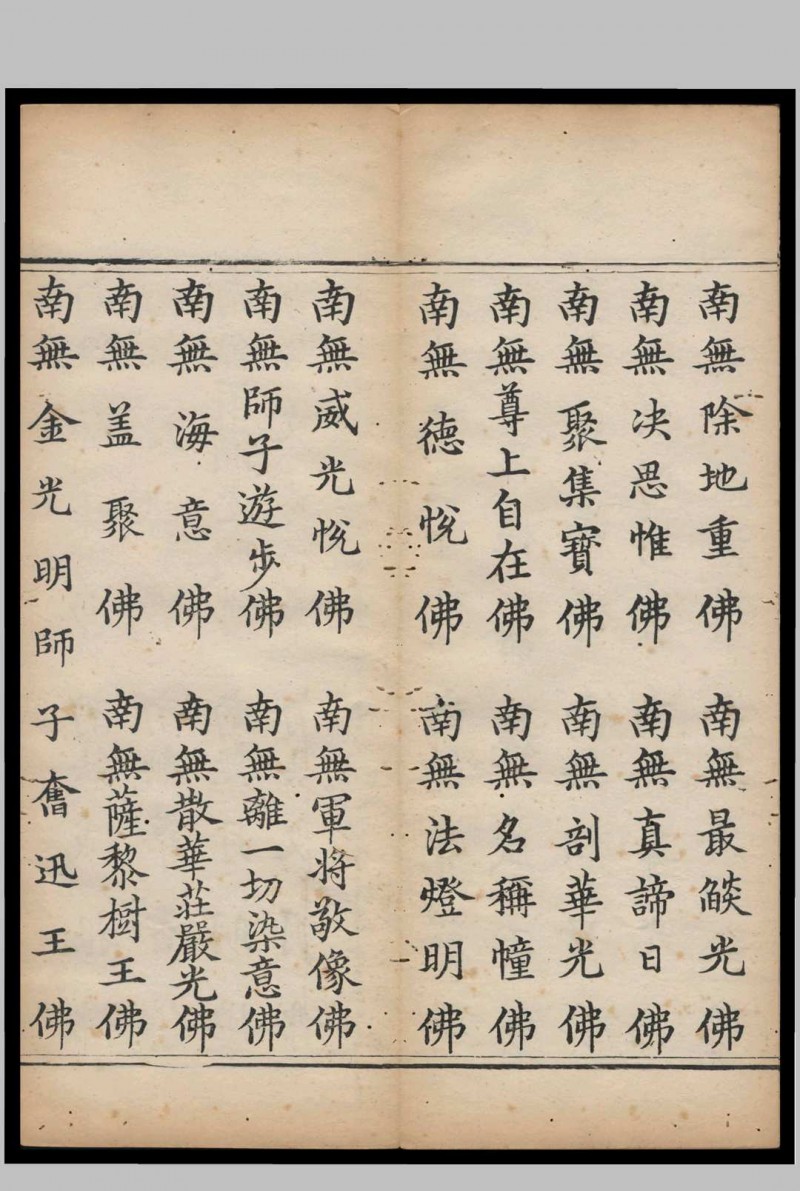 南無除地重佛　南無最燄光佛
南無決思惟佛　南無真諦日佛
南無聚集寶佛　南無剖華光佛
南無尊上自在佛　南無名稱幢佛
南無德悅佛　南無法燈明佛
南無威光悅佛　南無軍將敬像佛
南無師子遊步佛　南無離一切染意佛
南無海意佛　南無散華莊嚴光佛
南無蓋聚佛　南無薩黎樹王佛
南無金光明師子奮迅王佛